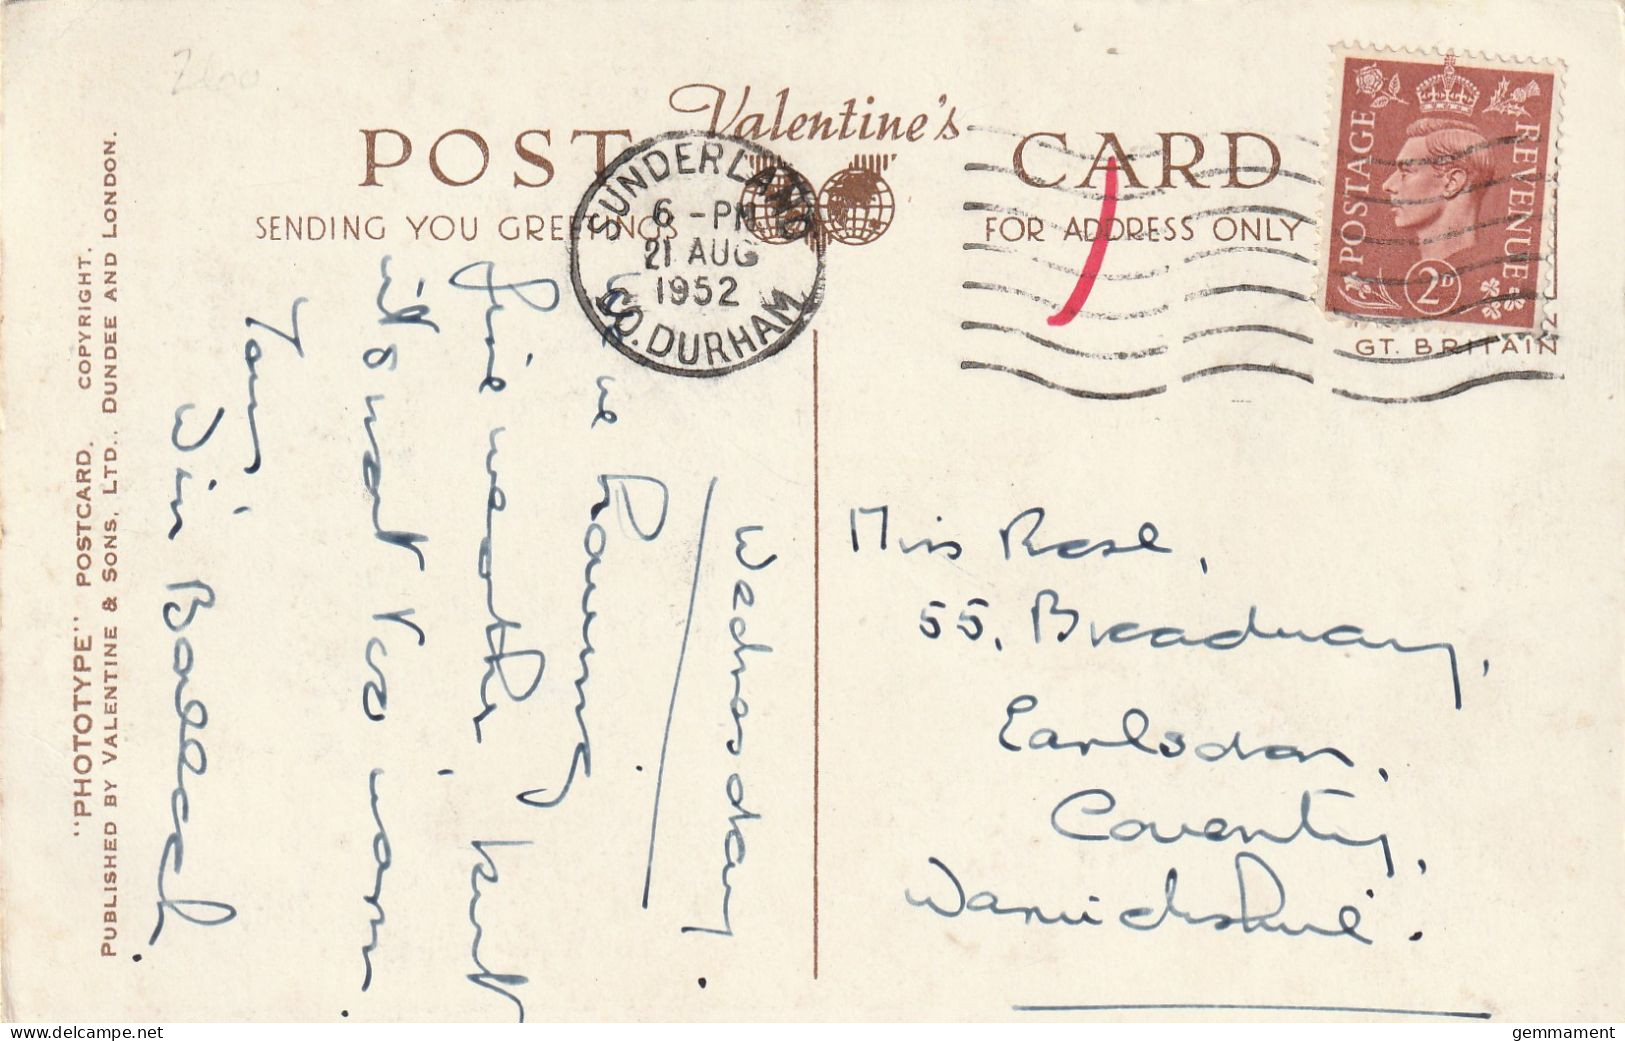 Valentine's
POST CARD
SENDING YOU GREETINGS
FOR ADDRESS ONLY
SUNDERLAND
6 - PM
21 AUG
1952
CO. DURHAM
POSTAGE
REVENUE
2D
GT. BRITAIN
Wednesday.
we
Fine weather but
it is not too warm.
Your
Win
Miss Rose,
55, Broadway,
Earlsdon,
Coventry,
Warwickshire.
"PHOTOTYPE" POSTCARD. COPYRIGHT.
PUBLISHED BY VALENTINE & SONS, LTD., DUNDEE AND LONDON.
delcampe.net
gemmament